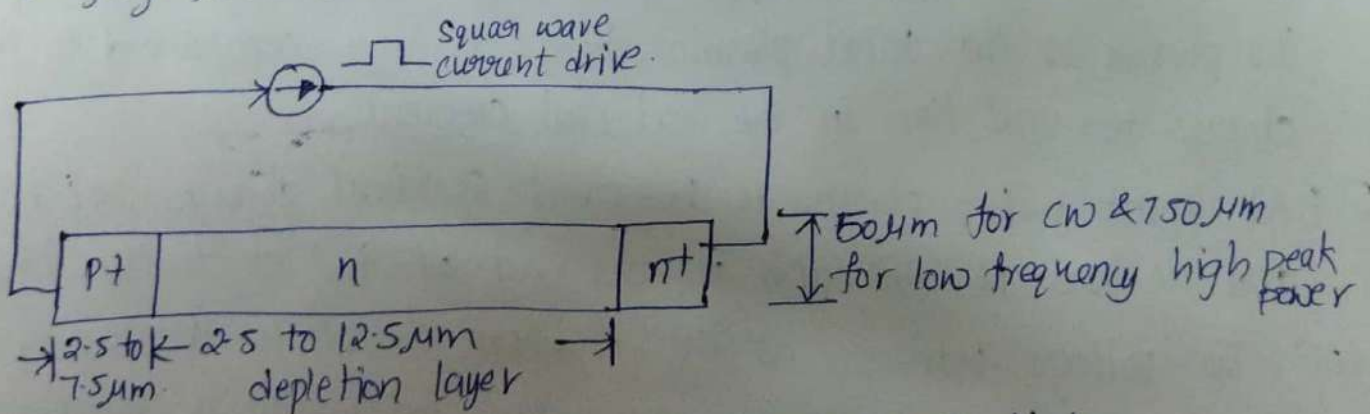 squar wave
current drive.
p+
n
n+
50μm for CW & 750μm
for low frequency high peak
power
2.5 to
7.5μm.
2.5 to 12.5μm
depletion layer